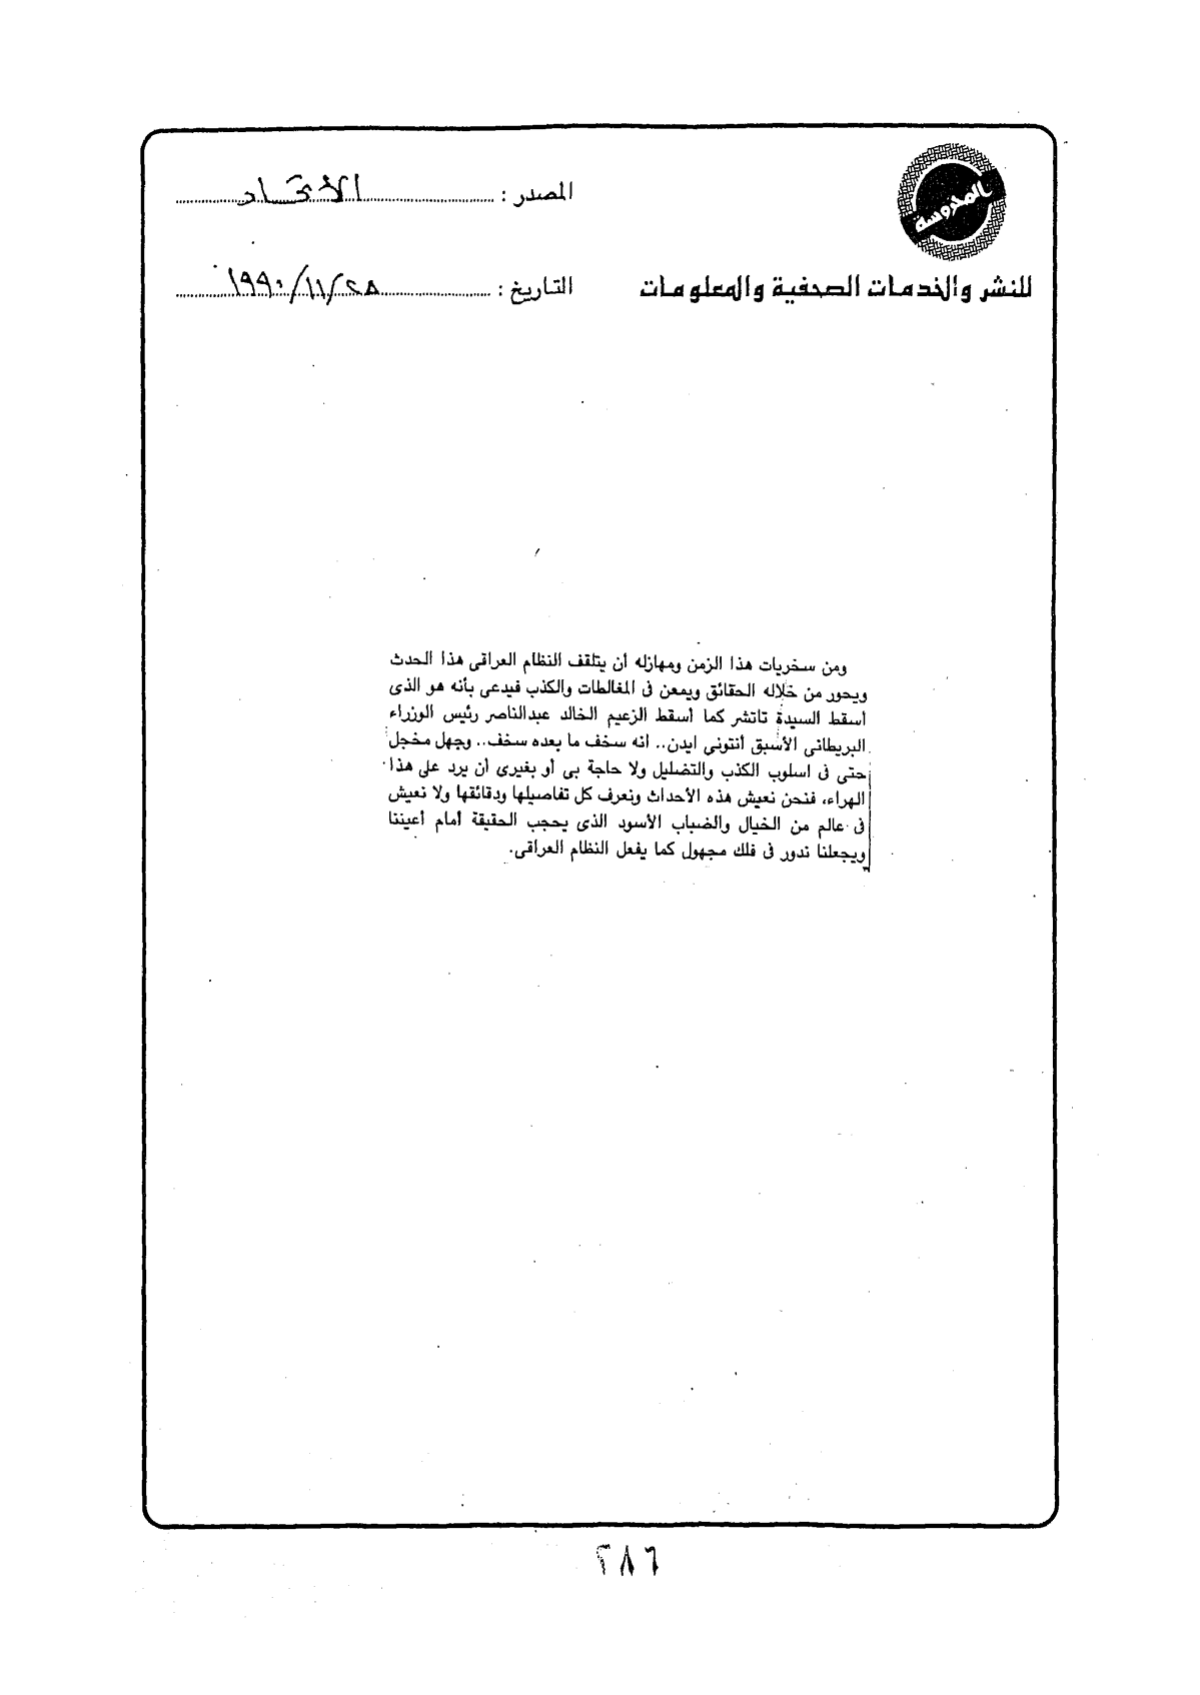 المدوسة
المصدر : الأتحاد
للنشر والخدمات الصحفية والمعلومات
التاريخ : ٢٨/١١/١٩٩٠
ومن سخريات هذا الزمن ومهازله أن يتلقف النظام العراقى هذا الحدث
ويحور من خلاله الحقائق ويمعن فى المغالطات والكذب فيدعى بأنه هو الذى
أسقط السيدة تاتشر كما أسقط الزعيم الخالد عبدالناصر رئيس الوزراء
البريطانى الأسبق أنتونى ايدن.. انه سخف ما بعده سخف.. وجهل مخجل
حتى فى اسلوب الكذب والتضليل ولا حاجة بى أو بغيرى أن يرد على هذا
الهراء، فنحن نعيش هذه الأحداث ونعرف كل تفاصيلها ودقائقها ولا نعيش
فى عالم من الخيال والضباب الأسود الذى يحجب الحقيقة أمام أعيننا
ويجعلنا ندور فى فلك مجهول كما يفعل النظام العراقى.
٢٨٦